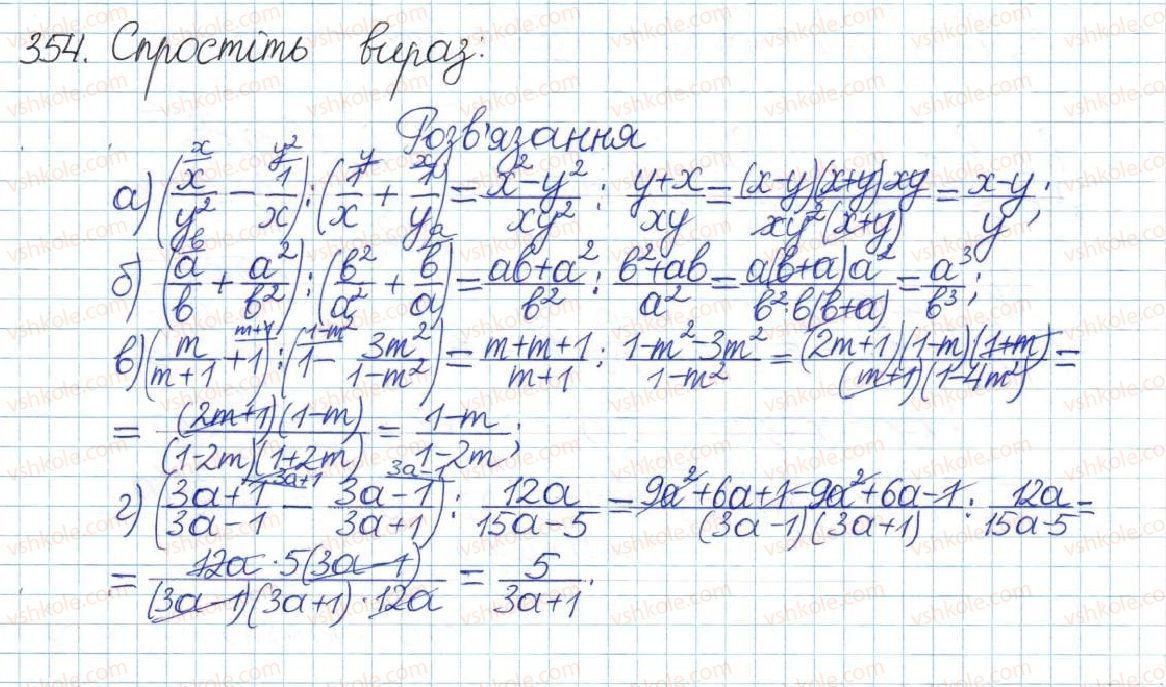 354. Спростіть вираз:
Розв'язання
а) (x/y² − 1/x) : (1/x + 1/y) = (x²−y²)/(xy²) : (y+x)/(xy) = ((x−y)(x+y)xy)/(xy²(x+y)) = (x−y)/y;
б) (a/b + a²/b²) : (b²/a² + b/a) = (ab+a²)/b² : (b²+ab)/a² = (a(b+a)a²)/(b²·b(b+a)) = a³/b³;
в) (m/(m+1) + 1) : (1 − 3m²/(1−m²)) = (m+m+1)/(m+1) : (1−m²−3m²)/(1−m²) = ((2m+1)(1−m)(1+m))/((m+1)(1−4m²)) =
= ((2m+1)(1−m))/((1−2m)(1+2m)) = (1−m)/(1−2m);
г) ((3a+1)/(3a−1) − (3a−1)/(3a+1)) : 12a/(15a−5) = (9a²+6a+1−9a²+6a−1)/((3a−1)(3a+1)) : 12a/(15a−5) =
= (12a·5(3a−1))/((3a−1)(3a+1)·12a) = 5/(3a+1).